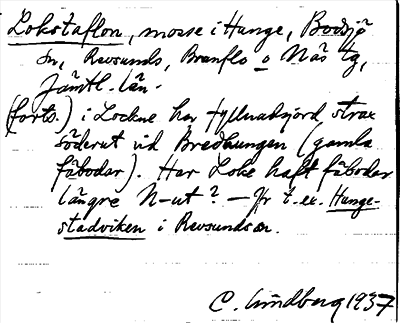 Lokstaflon, mosse i Hunge, Bodsjö
sn, Revsunds, Brunflo o Näs tg,
Jämtl. län.
(forts.) i Lockne har fyllnadsjord strax
söderut vid Bredbungen (gamla
fäbodar). Har Loke haft fäbodar
längre N-ut? — Jfr t. ex. Hunge-
stadviken i Revsundssn.
C. Lindberg 1937